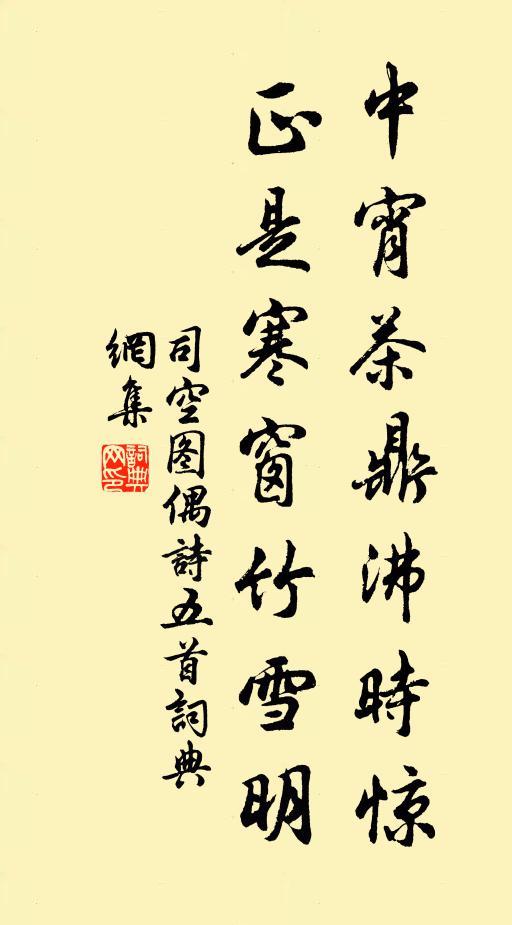 中宵茶鼎沸時惊
正是寒窗竹雪明
司空图偶詩五首詞典
網集
詞典
网印